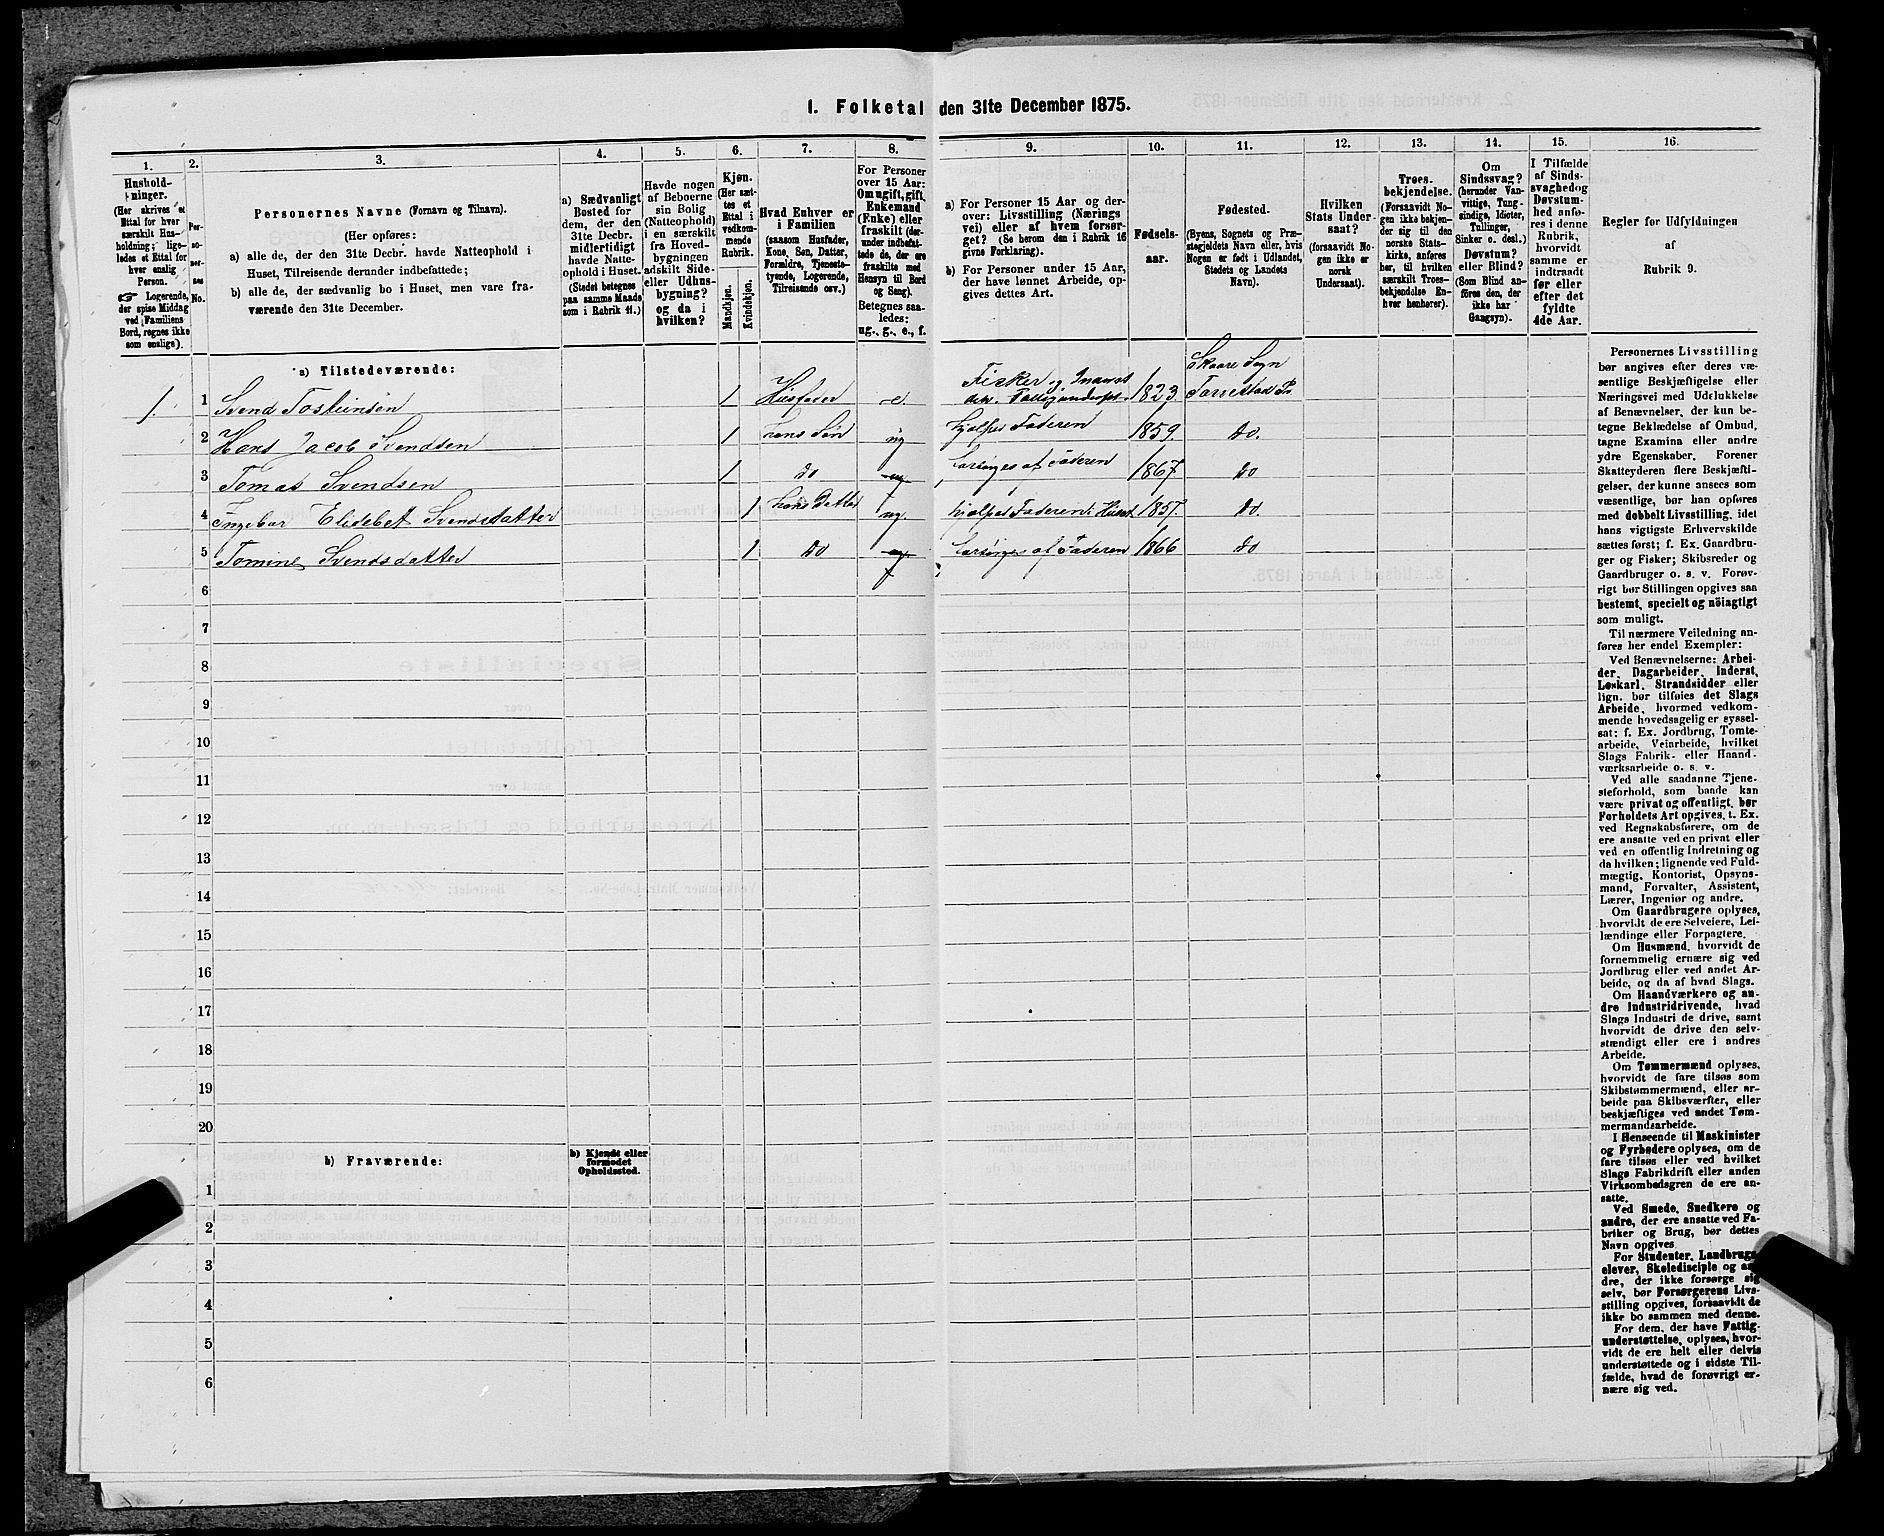 1. Folketal den 31te December 1875.
1.
2.
3.
4.
5.
6.
7.
8.
9.
10.
11.
12.
13.
14.
15.
16.
Hushold-
ninger.
(Her skrives et
Ettal for hver
særskilt Hus-
holdning; lige-
ledes et Ettal for
hver enslig
Person.
☞ Logerende,
der spise Middag
ved Familiens
Bord, regnes ikke
som enslige).
Per-
so-
ner-
nes
No.
Personernes Navne (Fornavn og Tilnavn).
(Her opføres:
a) alle de, der den 31te Decbr. havde Natteophold i
Huset, Tilreisende derunder indbefattede;
b) alle de, der sædvanlig bo i Huset, men vare fra-
værende den 31te December.
a) Sædvanligt
Bosted for
dem, der den
31te Decbr.
midlertidigt
havde Natte-
ophold i Huset.
(Stedet betegnes
paa samme Maade
som i Rubrik 11.)
Havde nogen
af Beboerne
sin Bolig
(Natteophold)
i en særskilt
fra Hoved-
bygningen
adskilt Side-
eller Udhus-
bygning?
og da i
hvilken?
Kjøn.
(Her sæt-
tes et
Ettal i
vedkom-
mende
Rubrik.
Mandkjøn.
Kvindekjøn.
Hvad Enhver er
i Familien
(saasom Husfader,
Kone, Søn, Datter,
Forældre, Tjeneste-
tyende, Logerende,
Tilreisende osv.)
For Personer
over 15 Aar:
Om ugift, gift,
Enkemand
(Enke) eller
fraskilt (der-
under indbefat-
tede de, der ere
fraskilte med
Hensyn til Bord
og Seng).
Betegnes saa-
ledes:
ug., g., e., f.
a) For Personer 15 Aar og der-
over: Livsstilling (Nærings
vei) eller af hvem forsør-
get? (Se herom den i Rubrik 16
givne Forklaring).
b) For Personer under 15 Aar,
der have lønnet Arbeide, op-
gives dettes Art.
Fødsels-
aar.
Fødested.
(Byens, Sognets og Præ-
stegjeldets Navn eller, hvis
Nogen er født i Udlandet,
Stedets og Landets
Navn).
Hvilken
Stats Under-
saat?
(forsaavidt No-
gen ikke er
norsk
Undersaat).
Troes-
bekjendelse.
(Forsaavidt No-
gen ikke bekjen-
der sig til den
norske Stats-
kirke, anføres
her, til hvilken
særskilt Troes-
bekjendelse En-
hver henhører).
Om
Sindssvag?
(herunder Van-
vittige, Tung-
sindige, Idioter,
Tullinger,
Sinker o. desl.)
Døvstum?
eller Blind?
(Som Blind an-
føres den, der
ikke har
Gangsyn).
I Tilfælde
af Sinds-
svaghed og
Døvstum-
hed anfø-
res i denne
Rubrik,
hvorvidt
samme er
indtraadt
før eller
efter det
fyldte
4de Aar.
Regler for Udfyldningen
af
Rubrik 9.
a) Tilstedeværende:
Skaare Sogn
1. 1 Svend Tosteinsen 1 Husfader e. Fisker og 1823 Torrestad Pr.
2 Hans Jacob Svendsen 1 hans Søn ug hjælper Faderen 1859. Do.
3 Tomas Svendsen 1 Do ug forsørges af Faderen 1867 Do
4 Ingebor Elidebet Svendsdatter 1 hans Datter ug. hjælper Faderen i Huset 1857. Do.
5 Tomine Svendsdatter 1 Do ug. forsørges af Faderen 1866 Do
6
7
8
9
10
11
12
13
14
15
16
17
18
19
20
b) Fraværende:
b) Kjendt eller
formodet
Opholdssted.
1
2
3
4
5
6
Personernes Livsstilling
bør angives efter deres væ-
sentlige Beskjæftigelse eller
Næringsvei med Udelukkelse
af Benævnelser, der kun be-
tegne Beklædelse af Ombud,
tagne Examina eller andre
ydre Egenskaber. Forener
Skatteyderen flere Beskjæfti-
gelser, der kunne ansees som
væsentlige, bør han opføres
med dobbelt Livsstilling, idet
hans vigtigste Erhvervskilde
sættes først; f. Ex. Gaardbru-
ger og Fisker; Skibsreder og
Gaardbruger o. s. v. Forøv-
rigt bør Stillingen opgives saa
bestemt, specielt og nöiagtigt
som muligt.
Til nærmere Veiledning an-
føres her endel Exempler:
Ved Benævnelserne: Arbei-
der, Dagarbeider, Inderst,
Løskarl, Strandsidder eller
lign. bør tilføies det Slags
Arbeide, hvormed vedkom-
mende hovedsagelig er syssel-
sat; f. Ex. Jordbrug, Tomte-
arbeide, Veiarbeide, hvilket
Slags Fabrik- eller Haand-
værksarbeide o. s. v.
Ved alle saadanne Tjene-
steforhold, som baade kan
være privat og offentligt, bør
Forholdets Art opgives, t. Ex.
ved Regnskabsførere, om de
ere ansatte ved en privat eller
ved en offentlig Indretning og
da hvilken; lignende ved Fuld-
mægtig, Kontorist, Opsyns-
mand, Forvalter, Assistent,
Lærer, Ingeniør og andre.
Om Gaardbrugere oplyses,
hvorvidt de ere Selveiere, Lei-
lændinge eller Forpagtere.
Om Husmænd, hvorvidt de
fornemmelig ernære sig ved
Jordbrug eller ved andet Ar-
beide, og da af hvad Slags.
Om Haandværkere og an-
dre Industridrivende, hvad
Slags Industri de drive, samt
hvorvidt de drive den selv-
stændigt eller ere i andres
Arbeide.
Om Tømmermænd oplyses,
hvorvidt de fare tilsøs som
Skibstømmermænd, eller ar-
beide paa Skibsværfter, eller
beskjæftiges ved andet Tøm-
mermandsarbeide.
I Henseende til Maskinister
og Fyrbødere oplyses, om de
fare tilsøs eller ved hvilket
Slags Fabrikdrift eller anden
Virksomhedsgren de ere an-
satte.
Ved Smede, Snedkere og
andre, der ere ansatte ved Fa-
briker og Brug, bør dettes
Navn opgives
For Studenter, Landbrugs-
elever, Skoledisciple og an-
dre, der ikke forsørge sig
selv, bør Forsørgerens Livs-
stilling opgives, forsaavidt de
ikke bo sammen med denne.
For dem, der have Fattig-
understøttelse, oplyses, hvor-
vidt de ere helt eller delvis
understøttede og i sidste Til-
fælde, hvad de forøvrigt er-
nære sig ved.